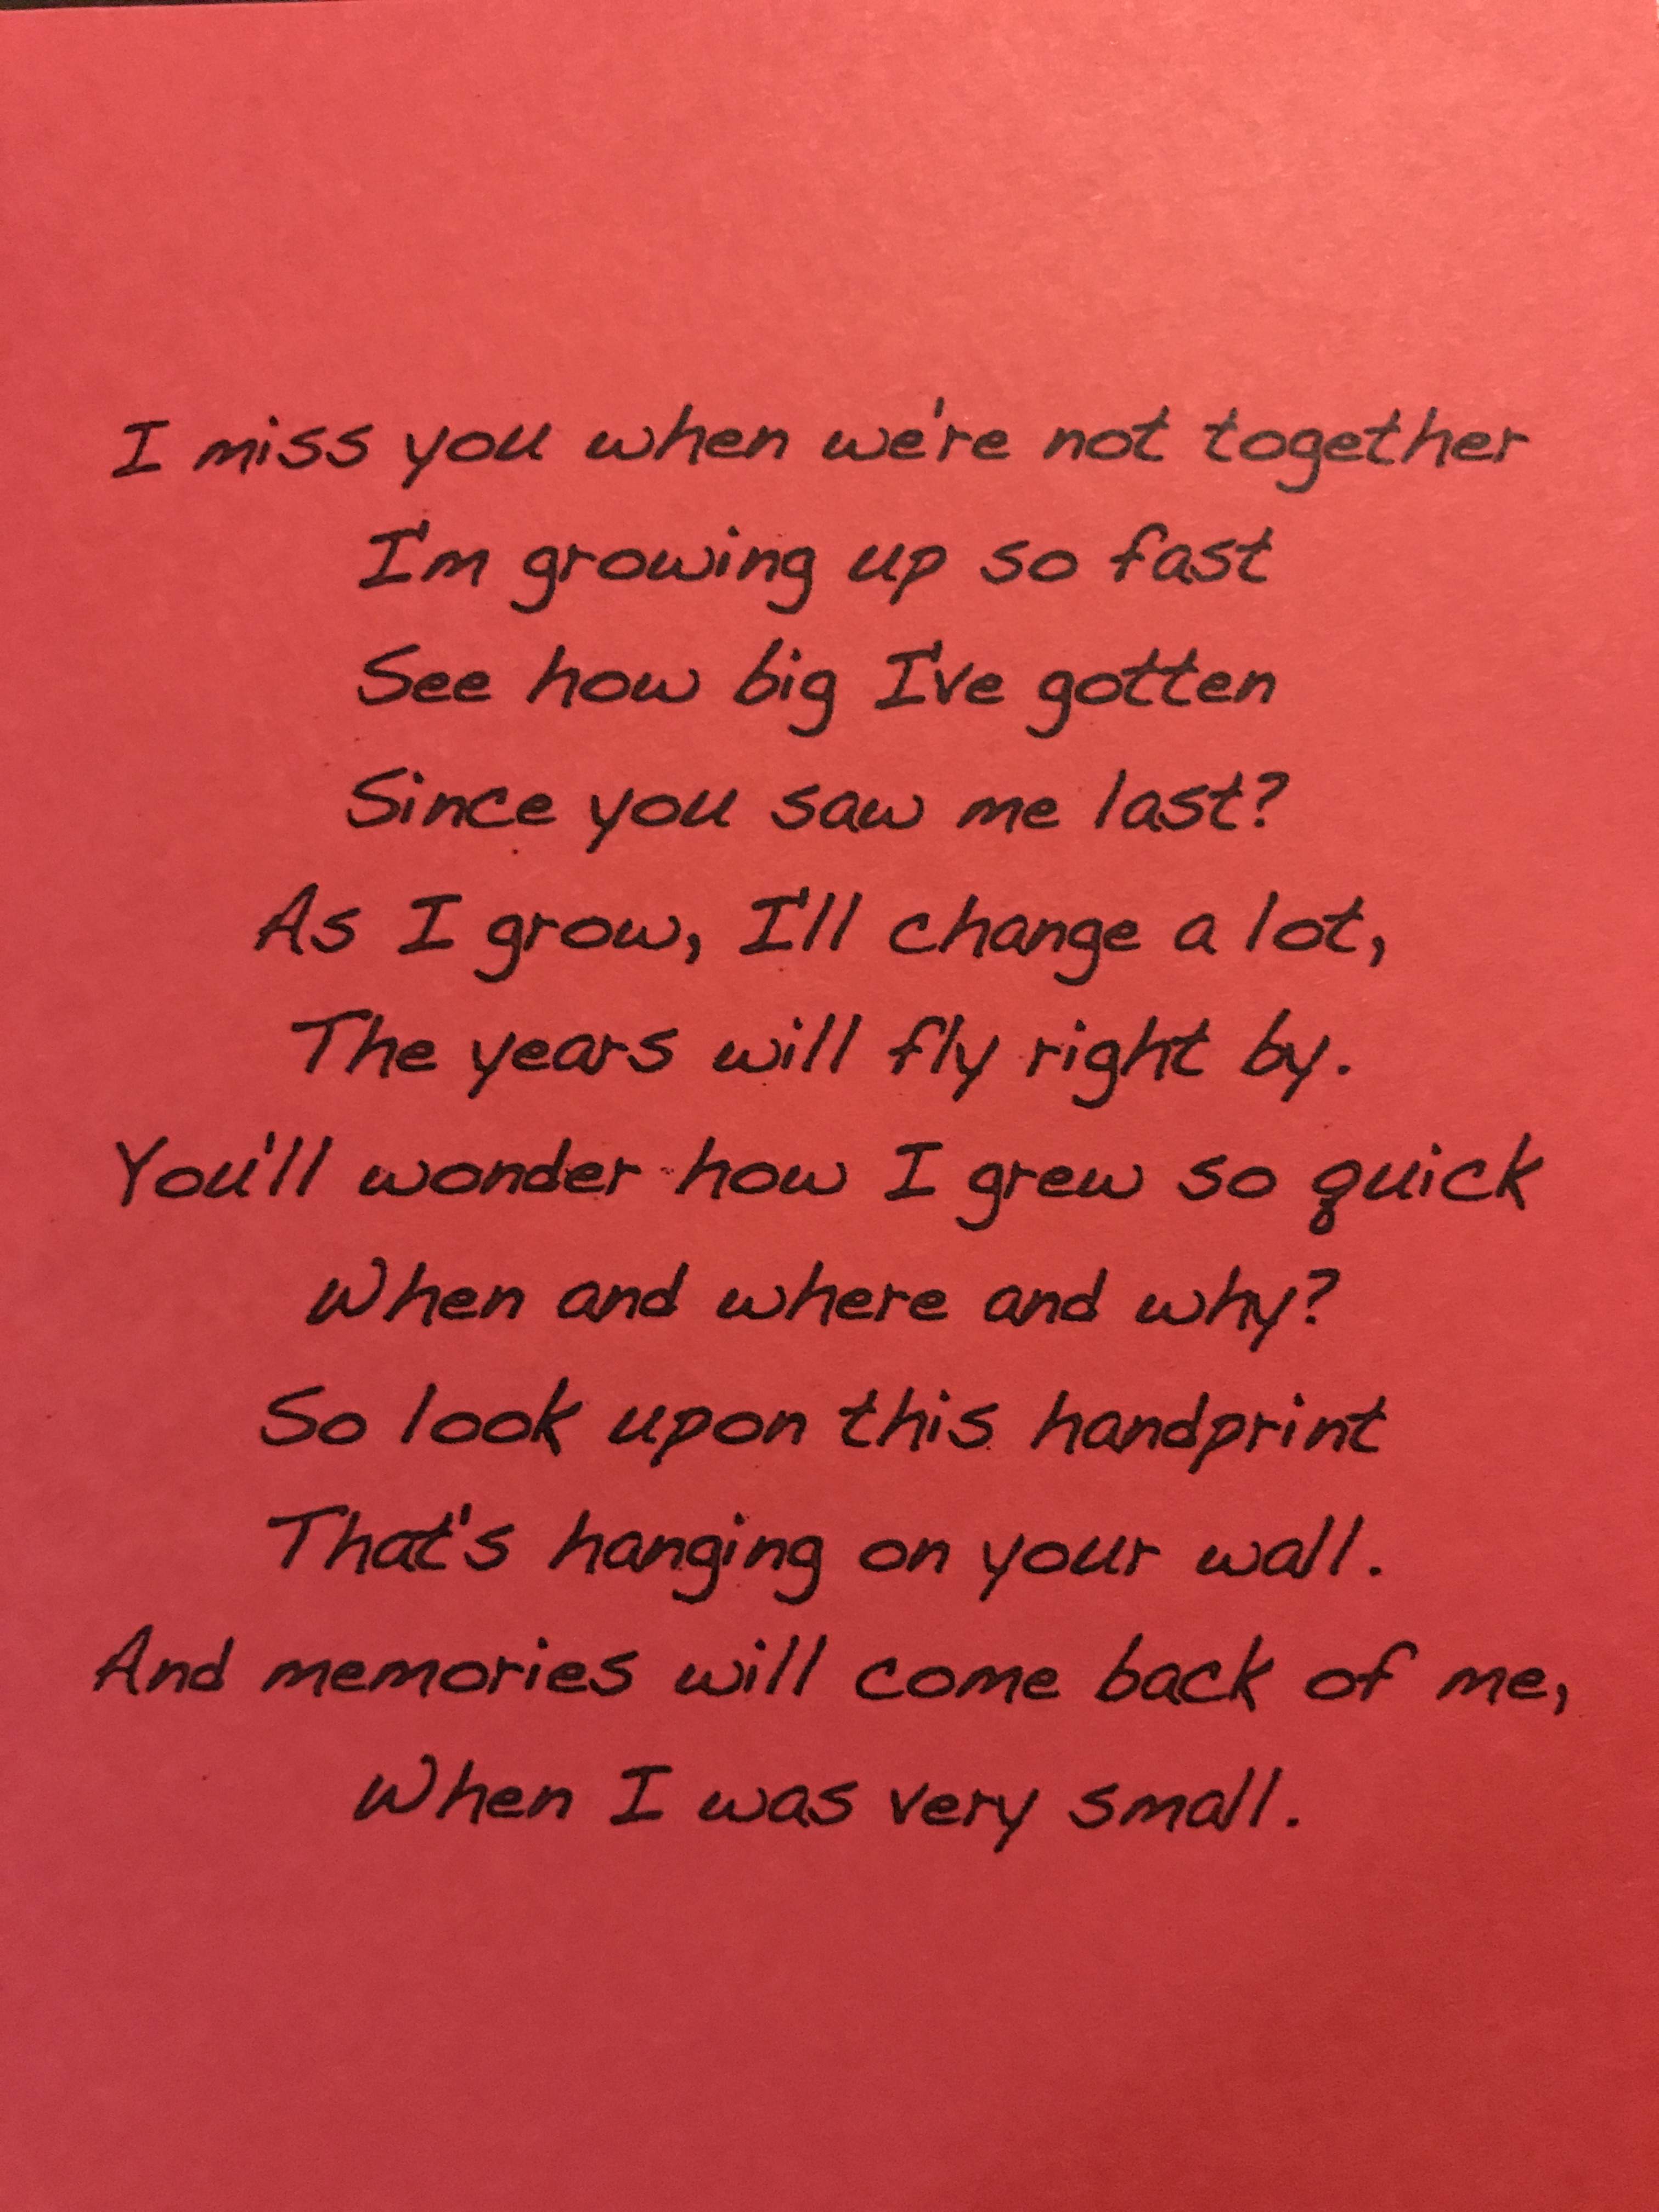 I miss you when we're not together
I'm growing up so fast
See how big I've gotten
Since you saw me last?
As I grow, I'll change a lot,
The years will fly right by.
You'll wonder how I grew so quick
When and where and why?
So look upon this handprint
That's hanging on your wall.
And memories will come back of me,
When I was very small.